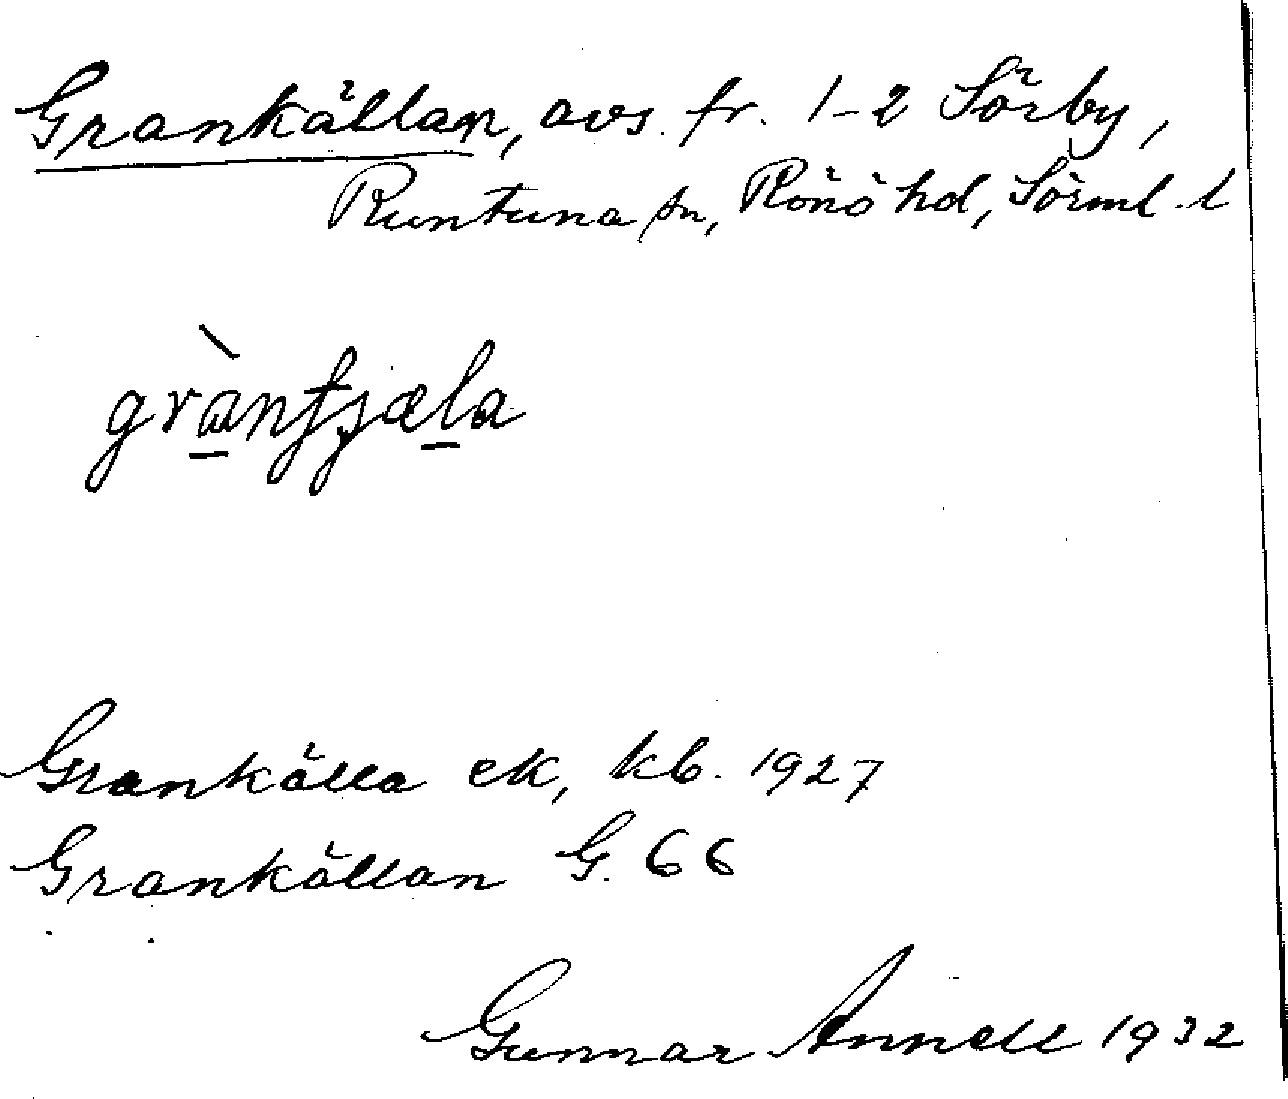 Grankällan, avs. fr. 1-2 Sörby,
Runtuna sn, Rönö hd, Sörml. l
gràntjæla
Grankälla ek, kb. 1927
Grankällan G. 66
Gunnar Annell 1932